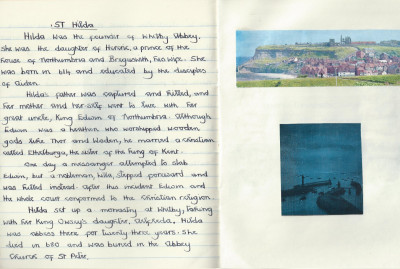 ST Hilda
Hilda was the founder of Whitby Abbey.
She was the daughter of Hereric, a prince of the
house of Northumbria and Breguswith, his wife. She
was born in 614 and educated by the disciples
of Aidan.
Hilda's father was captured and killed, and
her mother and her wife went to live with her
great uncle, King Edwin of Northumbria. Although
Edwin was a heathen who worshipped wooden
gods like Thor and Woden, he married a Christian
called Ethelburga, the sister of the King of Kent.
One day a messanger attempted to stab
Edwin, but a nobleman, Lilla, stepped forward and
was killed instead. After this incident Edwin and
the whole court conformed to the Christian religion.
Hilda set up a monastry at Whitby, taking
with her King Oswy's daughter, Aelfleda. Hilda
was abbess there for twenty three years. She
died in 680 and was buried in the Abbey
Church of St Peter.